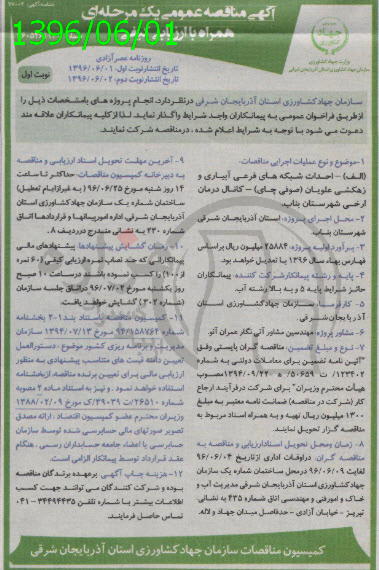 آگهی مناقصه عمومی یک مرحله‌ای
همراه با ارزیابی
1396/06/01
روزنامه عصر آزادی
تاریخ انتشار نوبت اول: ۱۳۹۶/۰۶/۰۱
تاریخ انتشار نوبت دوم: ۱۳۹۶/۰۶/۰۲
نوبت اول
وزارت جهاد کشاورزی
سازمان جهاد کشاورزی استان آذربایجان شرقی
سازمان جهاد کشاورزی استان آذربایجان شرقی در نظر دارد، انجام پروژه های با مشخصات ذیل را
از طریق فراخوان عمومی به پیمانکاران واجد شرایط واگذار نماید. لذا از کلیه پیمانکاران علاقه مند
دعوت می شود با توجه به شرایط اعلام شده، در مناقصه شرکت نمایند.
۱-موضوع و نوع عملیات اجرایی مناقصات:
(الف) - احداث شبکه های فرعی آبیاری و
زهکشی علویان (صوفی چای) - کانال درمان
آرخی شهرستان بناب.
۲- محل اجرای پروژه: استان آذربایجان شرقی
شهرستان بناب.
۳- برآورد اولیه پروژه: ۲۵۸۸۴ میلیون ریال براساس
فهارس بهاء سال ۱۳۹۶ یا تعدیل خواهد بود.
۴- پایه و رشته پیمانکار شرکت کننده: پیمانکاران
حائز شرایط پایه ۵ و به بالا رشته آب.
۵- کارفرما: سازمان جهاد کشاورزی استان
آذربایجان شرقی.
۶- مشاور پروژه: مهندسین مشاور آبی نگار عمران آتو.
۷- نوع و مبلغ تضمین: مناقصه گران بایستی وفق
"آئین نامه تضمین برای معاملات دولتی به شماره
۱۲۳۴۰۲/ت ۵۰۶۵۹ ه/ ۱۳۹۴/۰۹/۲۲ مصوب
هیأت محترم وزیران" برای شرکت در فرآیند ارجاع
کار (شرکت در مناقصه) ضمانت نامه معتبر به مبلغ
۱۳۰۰ میلیون ریال تهیه و به همراه اسناد مربوط به
مناقصه گزار تحویل نمایند.
۸- زمان ومحل تحویل اسناد ارزیابی و مناقصه به
مناقصه گران: در اوقات اداری از تاریخ ۹۶/۰۶/۰۴
لغایت ۹۶/۰۶/۰۹ در محل ساختمان شماره یک سازمان
جهاد کشاورزی استان آذربایجان شرقی مدیریت آب و
خاک و امور فنی و مهندسی اتاق شماره ۴۳۵ به نشانی:
تبریز - خیابان آزادی - حد فاصل میدان جهاد و لاله.
۹- آخرین مهلت تحویل اسناد ارزیابی و مناقصه
به دبیرخانه کمیسیون مناقصات: حداکثر تا ساعت
۱۴ روز شنبه مورخ ۹۶/۰۶/۲۵ (به غیر از ایام تعطیل)
ساختمان شماره یک سازمان جهاد کشاورزی استان
آذربایجان شرقی، اداره امور پیمانها و قراردادها اتاق
شماره ۲۳۰ به نشانی مندرج در ردیف ۸.
۱۰- زمان گشایش پیشنهادها: پیشنهادهای مالی
پیمانکارانی که حد نصاب نمره ارزیابی کیفی (۶۰ نمره
از ۱۰۰) را کسب نموده باشند در ساعت ۱۰ صبح
روز یکشنبه مورخ ۹۶/۰۷/۰۲ در اتاق جلسه سازمان
(شماره ۳۰۲) گشایش خواهد یافت.
۱۱- کمیسیون مناقصه باستناد بند ۱-۲ بخشنامه
شماره ۹۴/۱۵۸۷۶۲ مورخ ۱۳۹۴/۰۷/۱۳ سازمان
مدیریت و برنامه ریزی کشور موضوع: دستورالعمل
تعیین دامنه قیمت های متناسب پیشنهادی به منظور
ارزیابی مالی برای تعیین برنده مناقصه از بخشنامه
استفاده خواهد نمود. و نیز به استناد ماده ۲ مصوبه
وزیران محترم عضو کمیسیون اقتصاد: ارائه مصدق
تصویر صورتهای مالی حسابرسی شده توسط سازمان
حسابرسی یا اعضاء جامعه حسابداران رسمی، هنگام
عقد قرارداد توسط پیمانکار الزامی است.
۱۲- هزینه چاپ آگهی بر عهده برندگان مناقصه
بوده و شرکت کنندگان می توانند جهت کسب
اطلاعات بیشتر با شماره تلفن ۳۴۴۹۴۴۳۵ - ۰۴۱
تماس حاصل فرمایند.
کمیسیون مناقصات سازمان جهاد کشاورزی استان آذربایجان شرقی